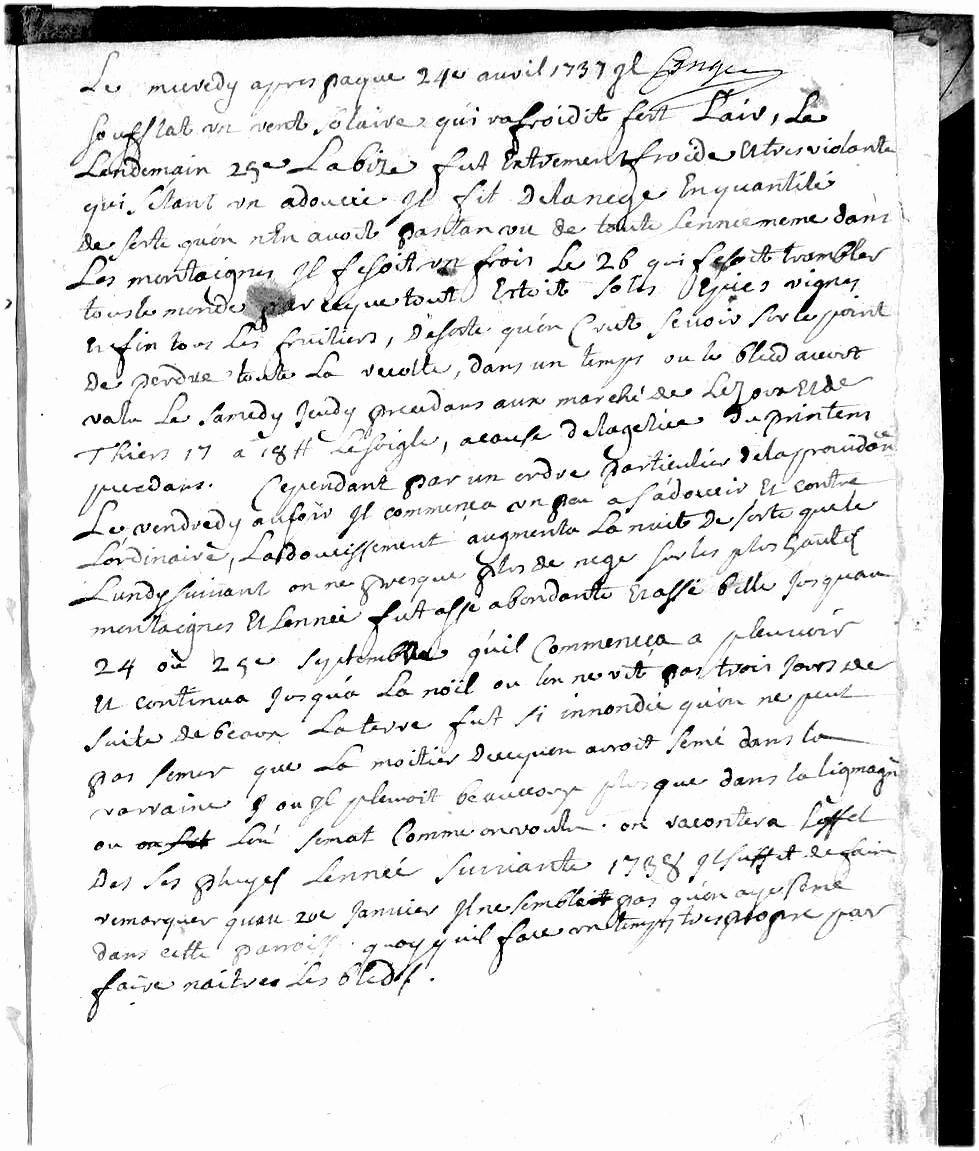 Le mecredy apres paque 24e avril 1737 Jl
soufflat un vent solaire qui rafroidit fort L'air, Le
Landemain 25e La bize fut Extrement froide Et tres violante
qui s'étant un adoucie Jl fit De la nege En quantité
de sorte qu'on n'En avoit pas tan vu de toute Lennée meme dans
Les montaignes Jl fesoit un frois Le 26 qui fesoit trambler
tous le monde par ceque tout Estoit vignes
En fin tous Les fruitiers, De sorte qu'on Crut se voir sur le point
De perdre toute La recolte, dans un temps ou le bled avoit
valu Le Samedy Jeudy precedans aux marché de Lezoux Et de
Thiers 17 a 18 tt Le seigle, a cause De la gelée Du printems
precedans. Cependant par un ordre particulier de la providan
Le vendredy au soir Jl commença un peu a s'adoucir Et contre
L'ordinaire, Ladoucissement augmenta La nuit De sorte que le
Lundy suivant on ne presque plus de nege sur les plus hautes
montaignes Et Lennée fut asse abondante Et asse belle Jusquau
24 ou 25e Septembre qu'il Commença a pleuvoir
Et continua Jusqu'a La noël ou l'on ne vit pas trois Jours de
suite de beaux La terre fut si innondée qu'on ne peut
pas semer que La moitier De ce quon avoit semé dans la
varraine ou Jl pleuvoit beaucoup plus que dans la limagn
ou l'on semat Comme on voulu. on racontera L'effet
Des ses pluyes Lennée Suivante 1738 Jl suffit de faire
remarquer quau 20e Janvier Jl ne sembloit pas qu'on aye semé
dans cette parroisse quoy qu'il fasse un temps tres propre par
faire naitres Les bleds.